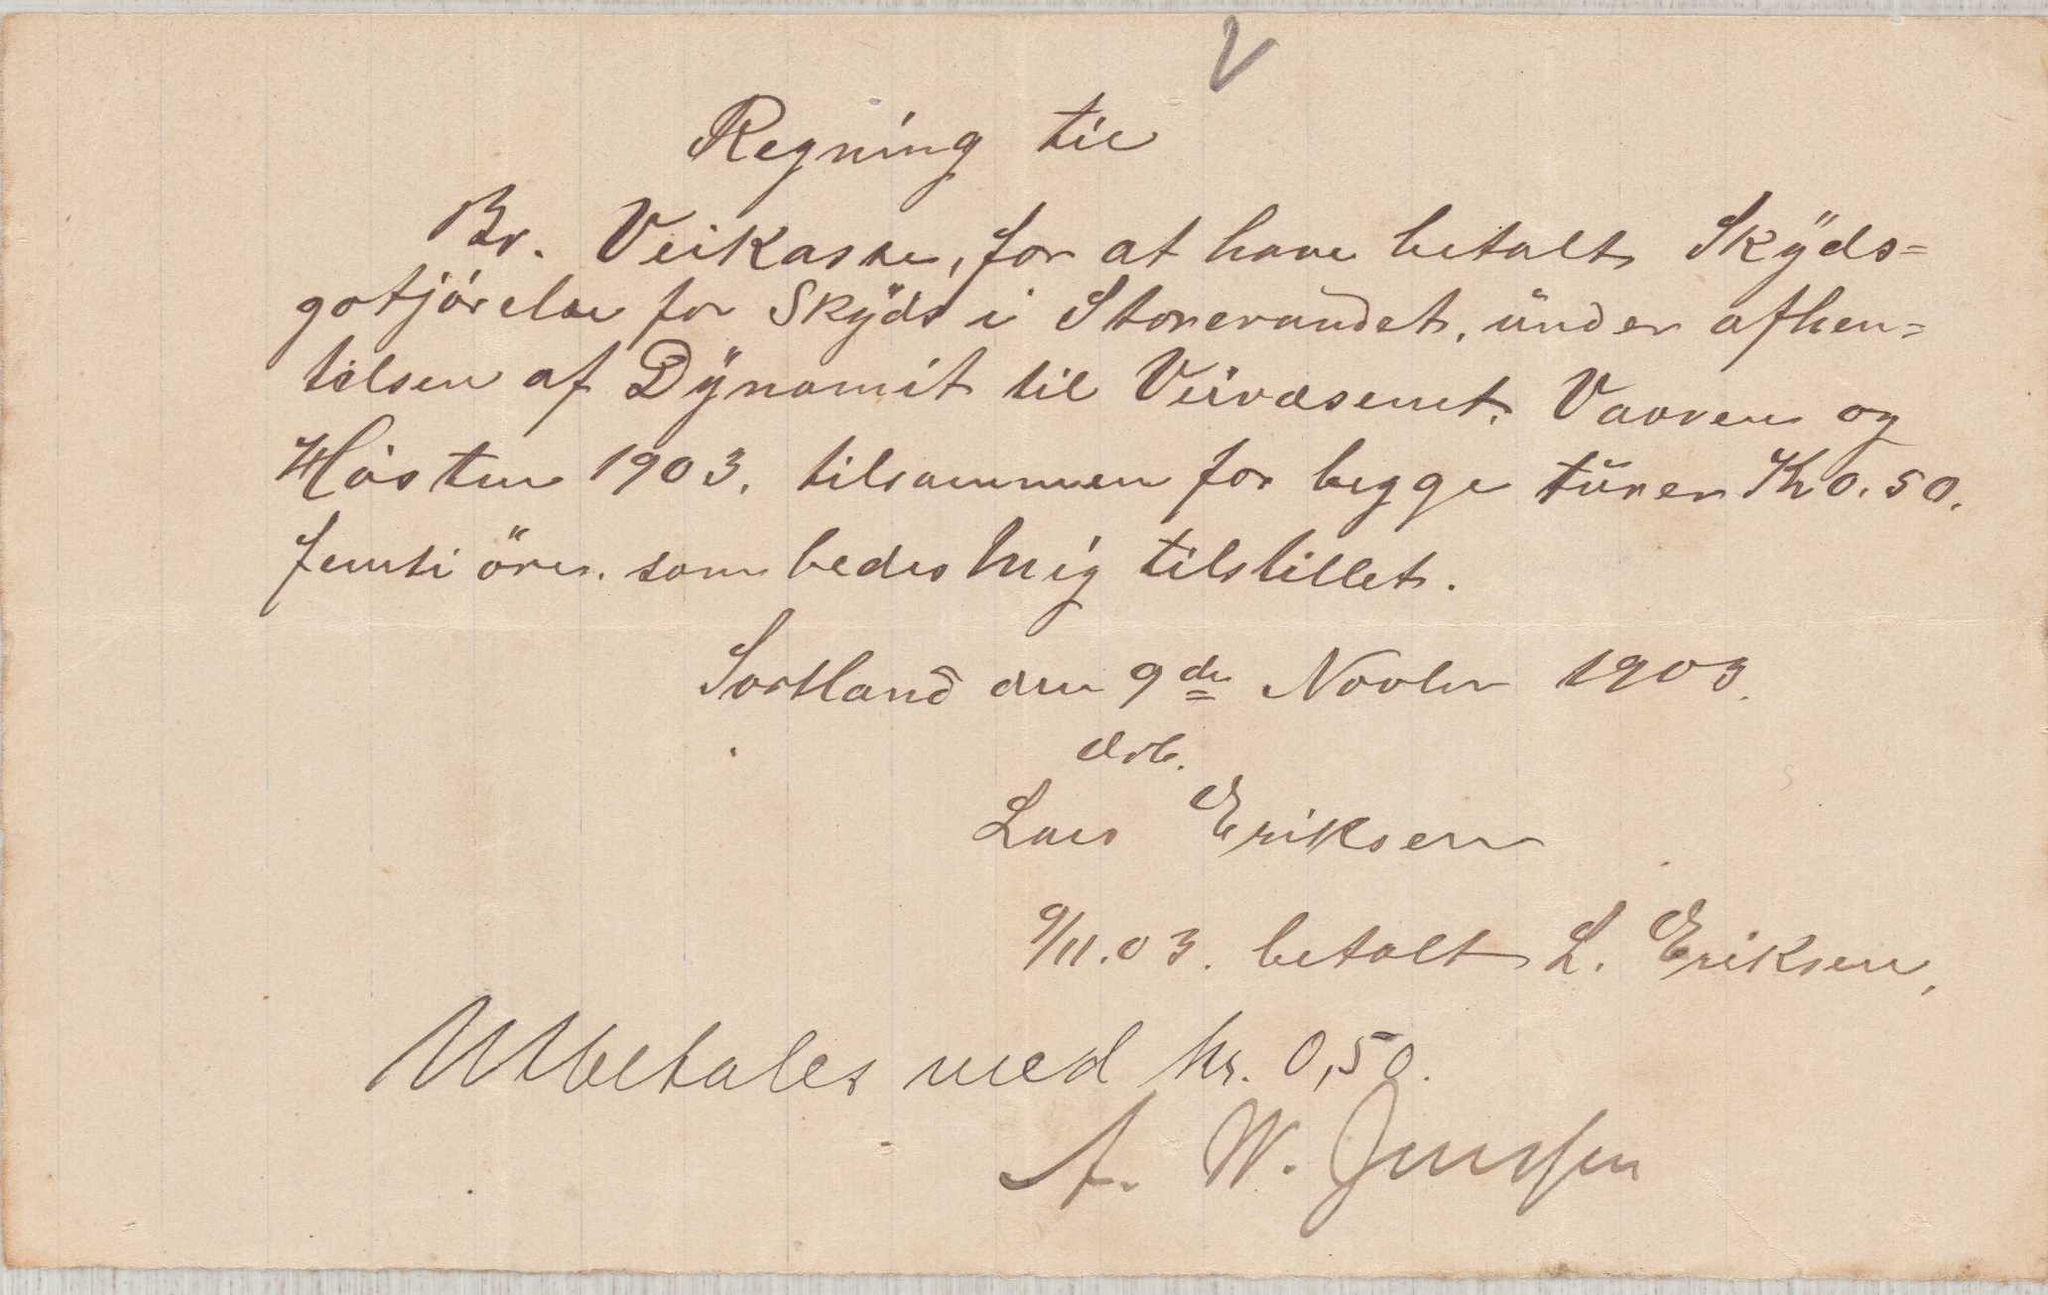 V
Regning til
Br. Veikasse, for at have betalt Skÿds=
gotjörelse for Skÿds i Storevandet, ünder afhen=
telsen af Dÿnamit til Veivæsenet. Vaaren og
Hösten 1903. tilsammen for begge türer Kr 0.50.
femti öre. som bedes mig tilstillet.
Sortland den 9de Novbr 1903.
ærb.
Lars Eriksen
9/11.03. betalt L. Eriksen,
Utbetales med kr. 0,50.
A. W. Jenssen